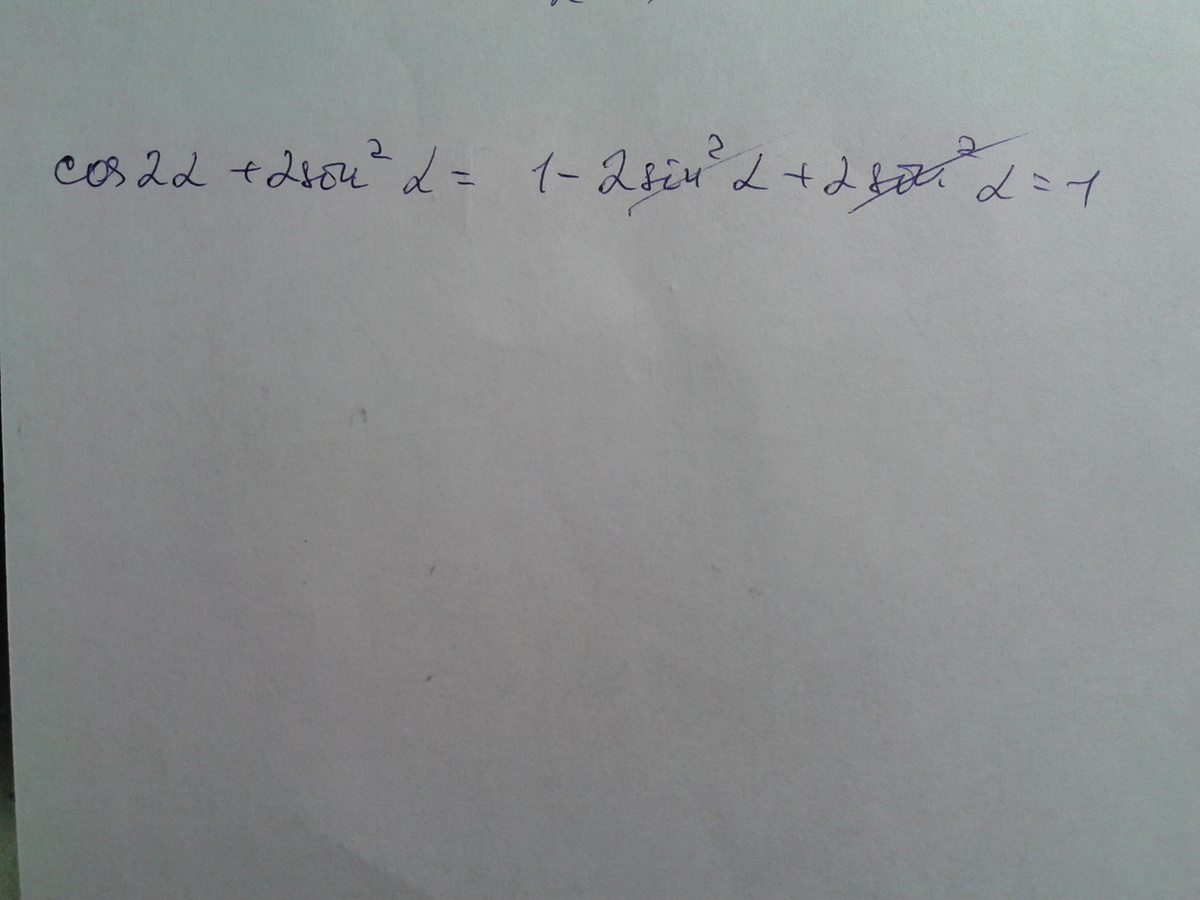 cos2α + 2sin²α = 1 - 2sin²α + 2sin²α = 1